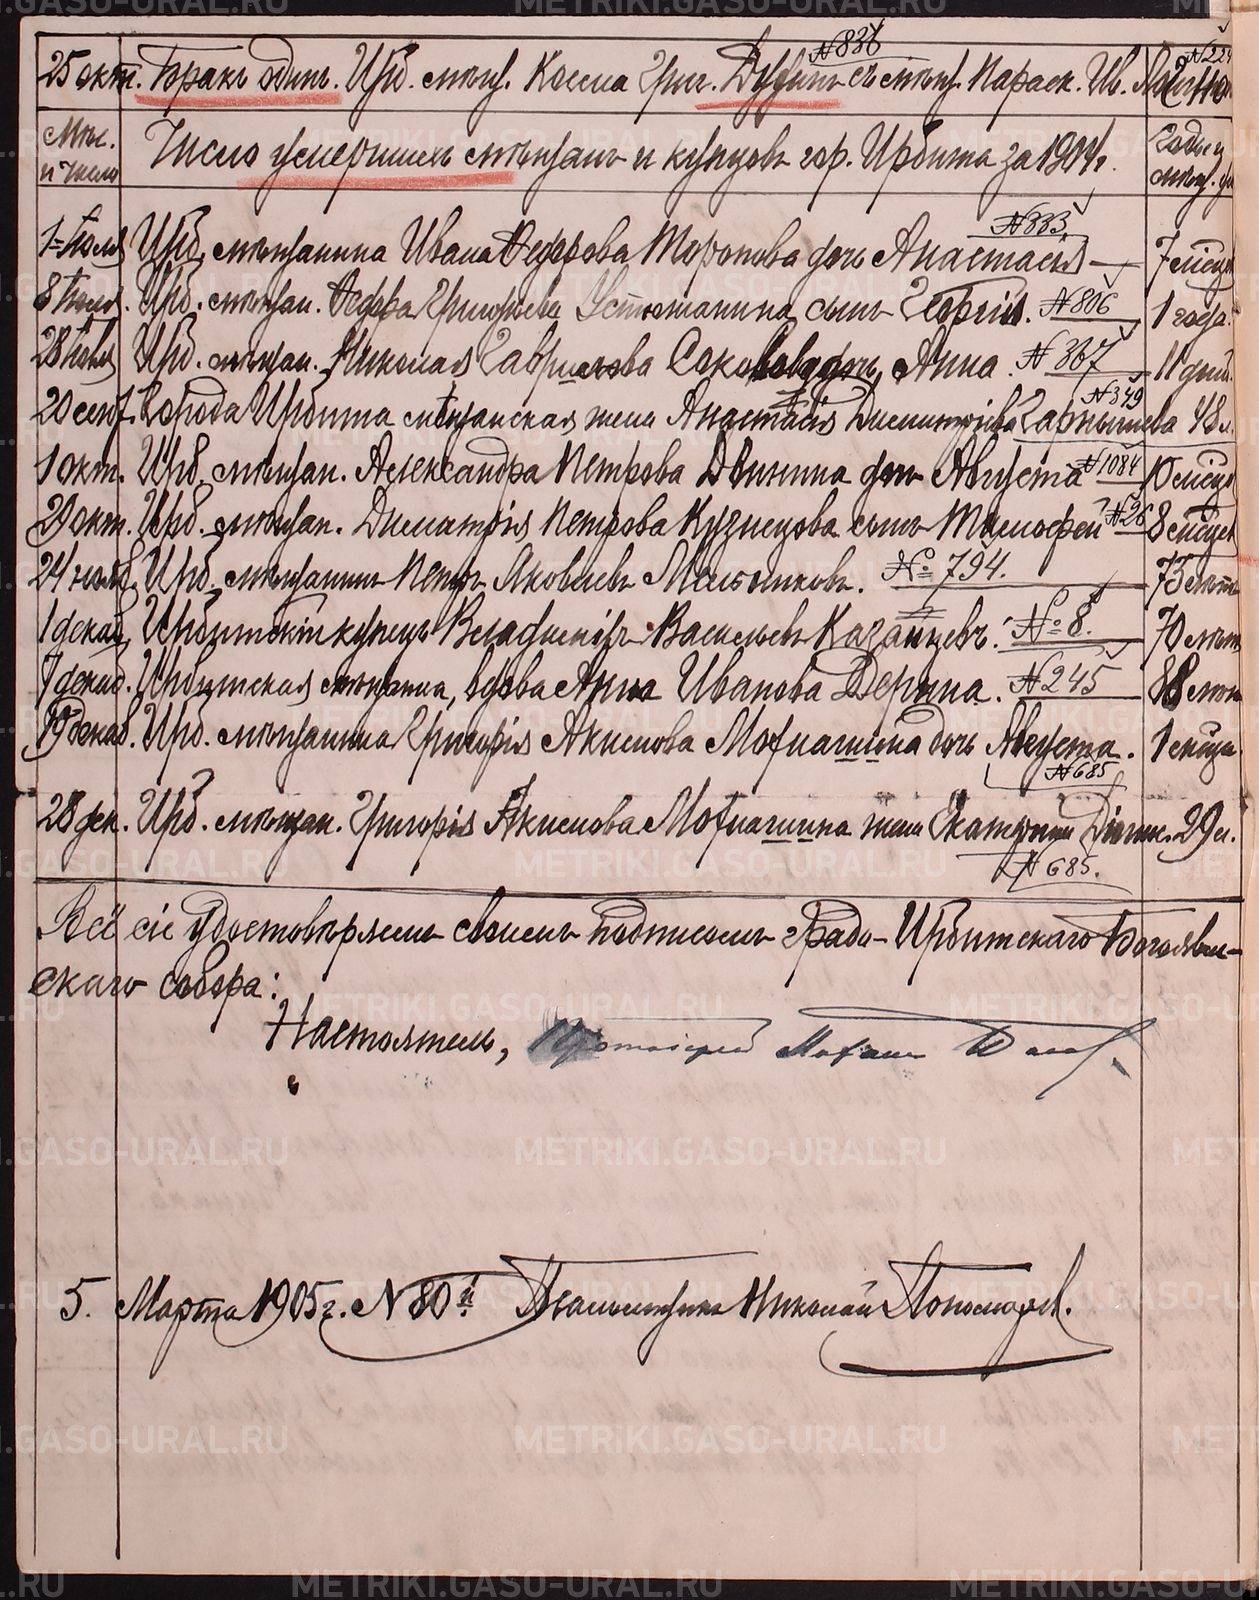 25 окт. Бракъ одинъ. Ирб. мѣщ. Косма Григ. съ мѣщ. Параск. Ив.
№ 836
№ 224
Мѣс. и число
Число умершихъ мѣщанъ и купцовъ гор. Ирбита за 1904 г.
Годы и мѣсц.
№ 333.
1 Ирб. мѣщанина Ивана Ѳедорова Торопова дочь Анастасія — 7 мѣсц
8 Ирб. мѣщан. Григорьева Устюжанина сынъ Георгій. № 806 1 года.
28 Ирб. мѣщан. Николая Гаврилова дочь Анна. № 367 11 дней.
№ 349
20 сент. Города Ирбита мѣщанская жена Анастасія Димитріева 48 л.
1 окт. Ирб. мѣщан. Александра Петрова Двинина дочь Августа № 1084 мѣсц
29 окт. Ирб. мѣщан. Димитрія Петрова Кузнецова сынъ Тимофей № 26 8 мѣсцев
24 нояб. Ирб. мѣщанинъ Петръ Яковлевъ Мельниковъ. № 794. 73 лѣтъ
1 декаб. Ирбитскій купецъ Владиміръ Васильевъ Казанцевъ. № 8. 70 лѣтъ
7 декаб. Ирбитская мѣщанка, вдова Анна Иванова № 245 88 лѣтъ
19 декаб. Ирб. мѣщанина Григорія Акимова Мокшина дочь Августа. 1 мѣсц.
№ 685
28 дек. Ирб. мѣщан. Григорія Акимова жена Екатерина 29 л.
№ 685.
Всё сіе удостовѣряемъ своимъ подписомъ Градо-Ирбитскаго Богоявлен-
скаго собора:
Настоятель, Протоіерей
5. Марта 1905 г. № 80й Псаломщикъ Николай Пономарев.
METRIKI.GASO-URAL.RU